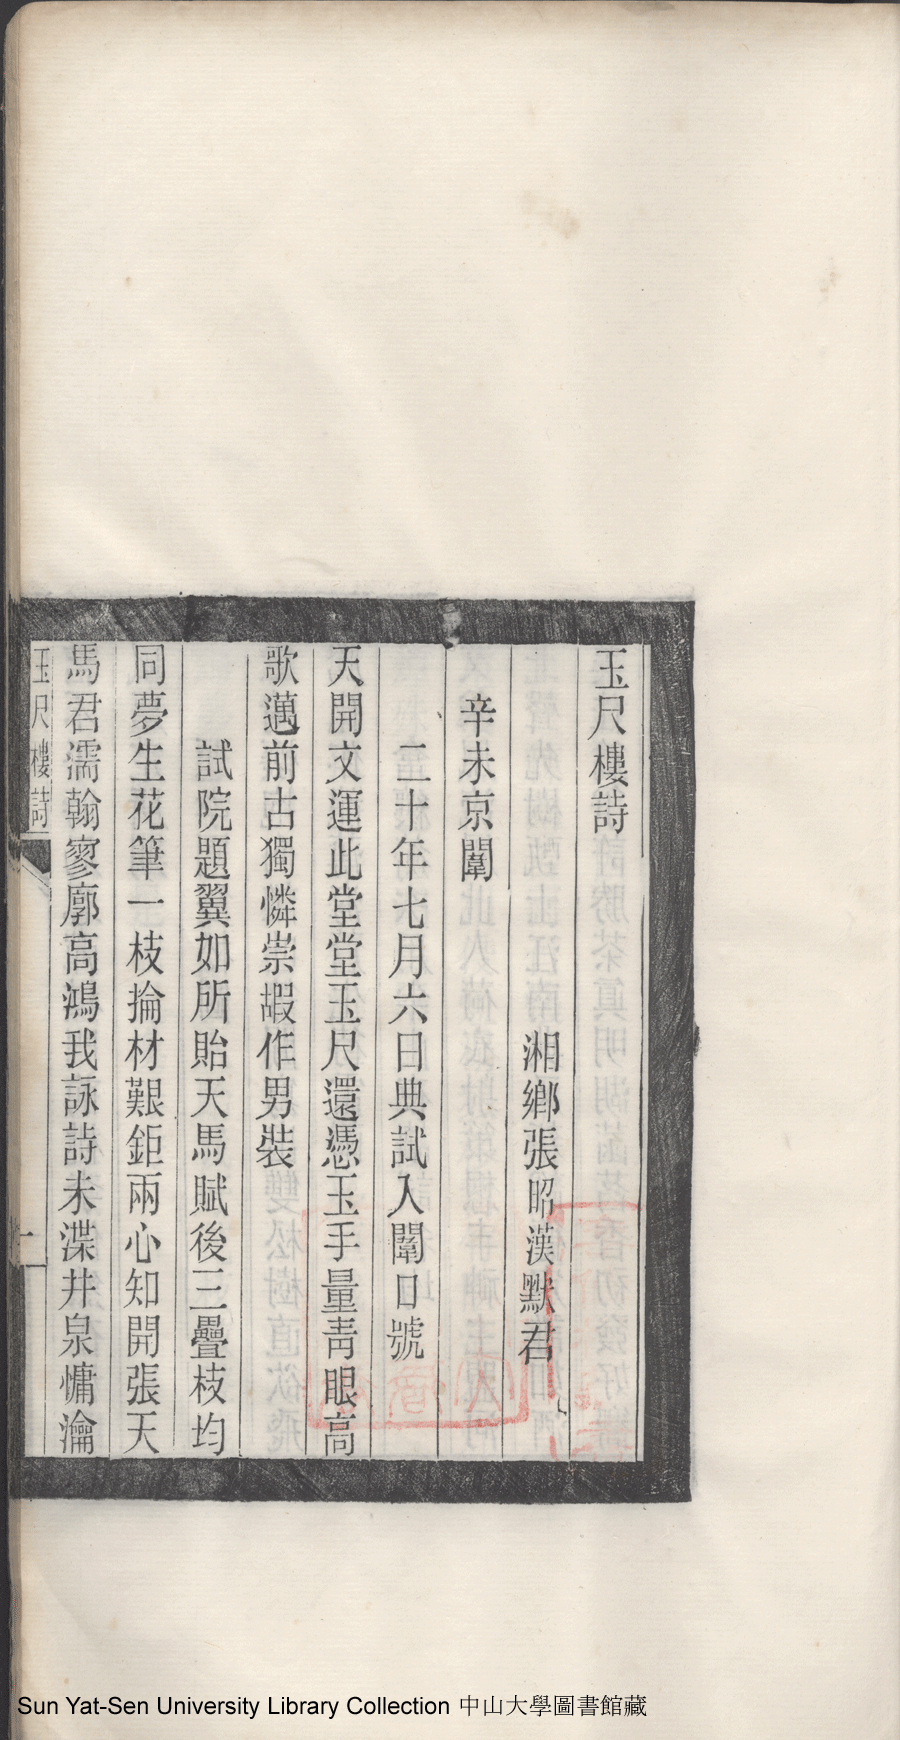 玉尺樓詩
湘鄉張昭漢默君
辛未京闈
二十年七月六日典試入闈日號
天開文運此堂堂玉尺還憑玉手量靑眼高
歌邁前古獨憐崇嘏作男裝
試院題翼如所貽天馬賦後三疊枝均
同夢生花筆一枝掄材艱鉅兩心知開張天
馬君濡翰寥廓高鴻我詠詩未渫井泉慵瀹
玉尺樓詩
一
Sun Yat-Sen University Library Collection 中山大學圖書館藏